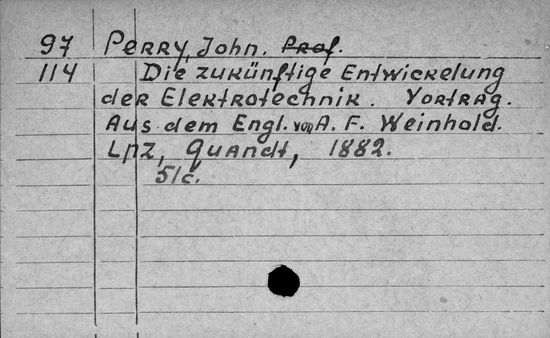 97 Perry, John. Prof.
114 Die zukünftige Entwickelung
der Elektrotechnik. Vortrag.
Aus dem Engl. von A. F. Weinhold.
Lpz, Quandt, 1882.
51c.